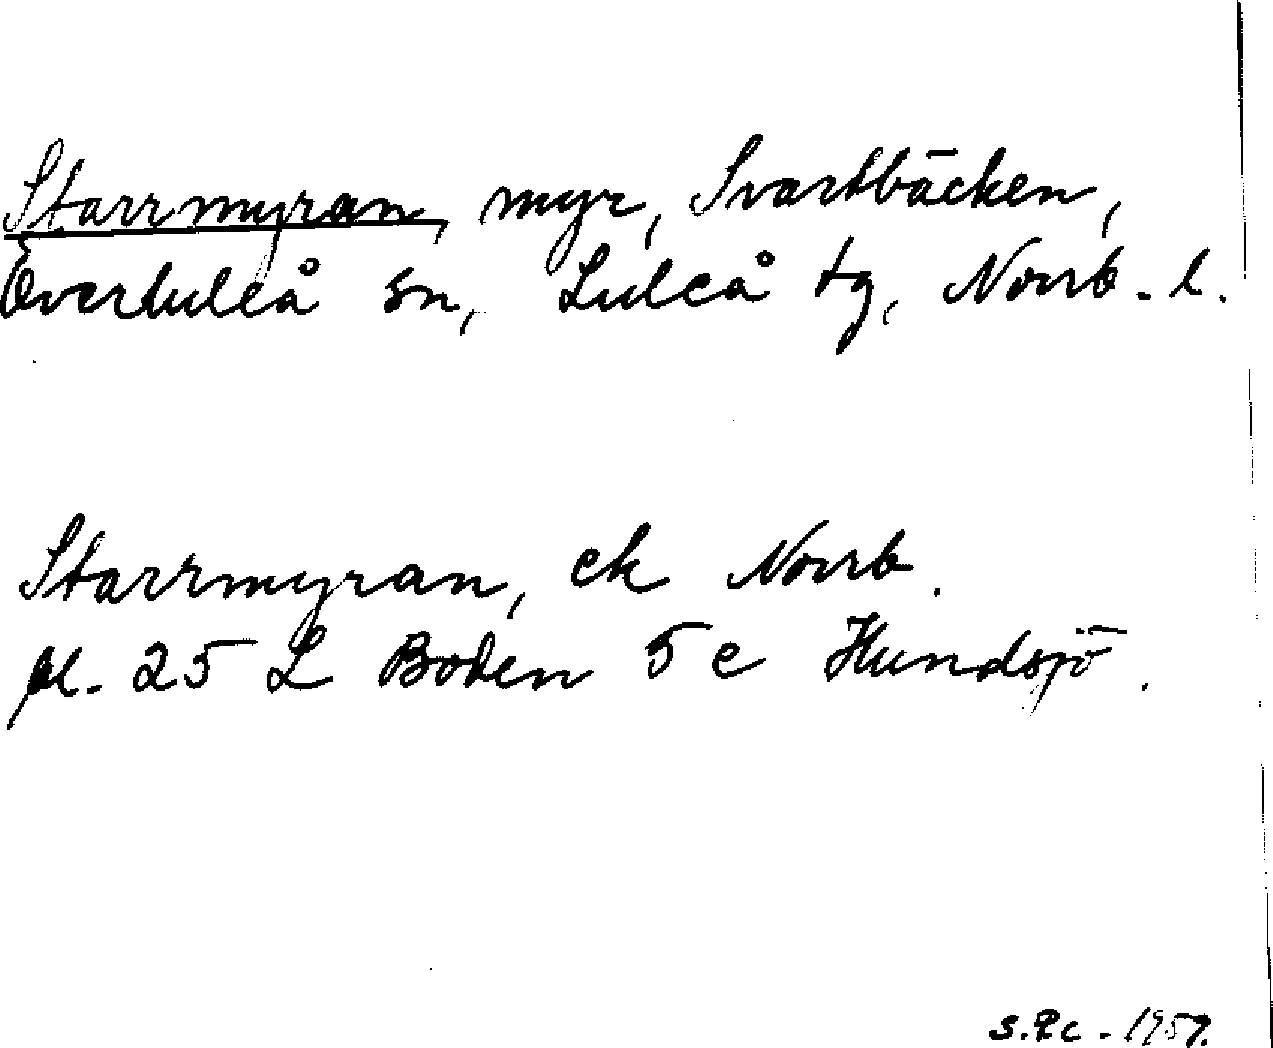 Starrmyran, myr, Svartbäcken,
Överluleå sn, Luleå tg, Norrb. l.
Starrmyran, ek Norrb.
bl. 25 L Boden 5 c Hundsjö.
1957.